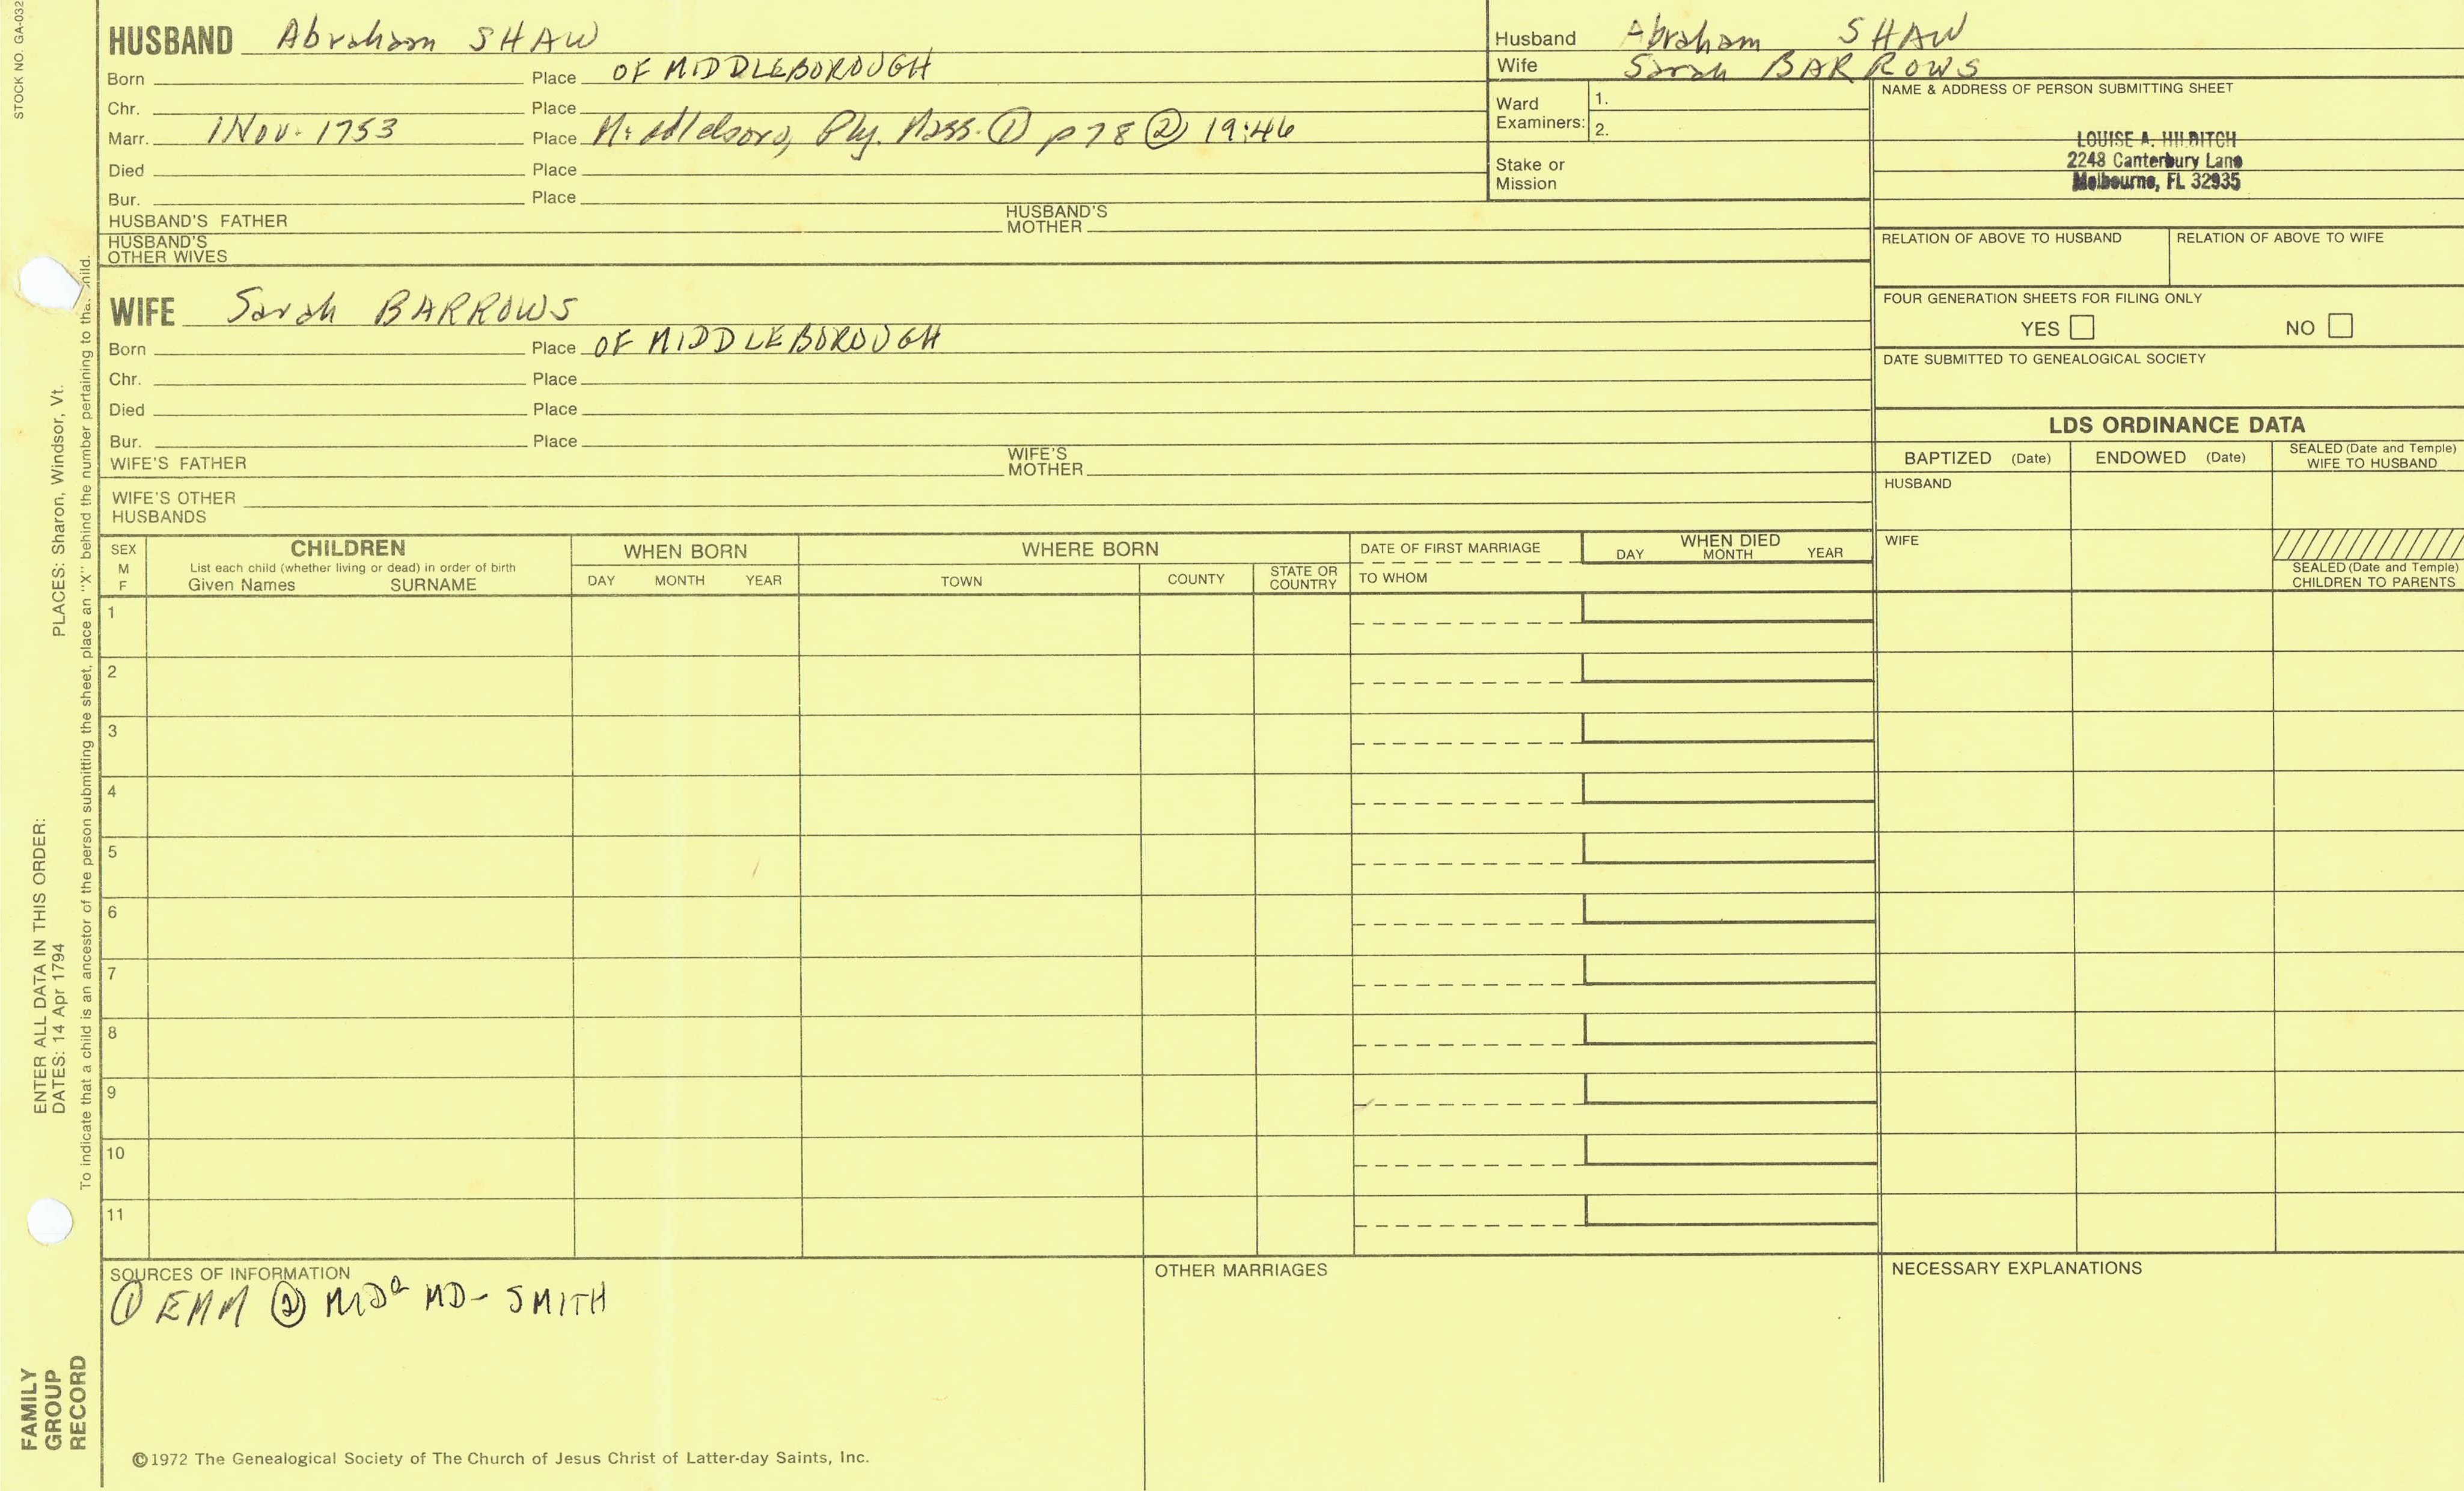 STOCK NO. GA-032
HUSBAND Abraham SHAW
Born Place OF MIDDLEBOROUGH
Chr. Place
Marr. 1 Nov. 1753 Place Middleboro, Ply. Mass. ① p78 ② 19:46
Died Place
Bur. Place
HUSBAND'S FATHER HUSBAND'S MOTHER
HUSBAND'S OTHER WIVES
Husband Abraham SHAW
Wife Sarah BARROWS
Ward Examiners: 1.
2.
Stake or Mission
NAME & ADDRESS OF PERSON SUBMITTING SHEET
LOUISE A. HILDITCH
2248 Canterbury Lane
Melbourne, FL 32935
RELATION OF ABOVE TO HUSBAND RELATION OF ABOVE TO WIFE
FOUR GENERATION SHEETS FOR FILING ONLY
YES NO
DATE SUBMITTED TO GENEALOGICAL SOCIETY
WIFE Sarah BARROWS
Born Place OF MIDDLEBOROUGH
Chr. Place
Died Place
Bur. Place
WIFE'S FATHER WIFE'S MOTHER
WIFE'S OTHER HUSBANDS
LDS ORDINANCE DATA
BAPTIZED (Date) ENDOWED (Date) SEALED (Date and Temple) WIFE TO HUSBAND
HUSBAND
WIFE
SEALED (Date and Temple) CHILDREN TO PARENTS
SEX M F
CHILDREN
List each child (whether living or dead) in order of birth
Given Names SURNAME
WHEN BORN
DAY MONTH YEAR
WHERE BORN
TOWN COUNTY STATE OR COUNTRY
DATE OF FIRST MARRIAGE
TO WHOM
WHEN DIED
DAY MONTH YEAR
1
2
3
4
5
6
7
8
9
10
11
SOURCES OF INFORMATION
① EMM ② MD- SMITH
OTHER MARRIAGES
NECESSARY EXPLANATIONS
©1972 The Genealogical Society of The Church of Jesus Christ of Latter-day Saints, Inc.
FAMILY GROUP RECORD
ENTER ALL DATA IN THIS ORDER:
DATES: 14 Apr 1794 PLACES: Sharon, Windsor, Vt.
To indicate that a child is an ancestor of the person submitting the sheet, place an "X" behind the number pertaining to that child.